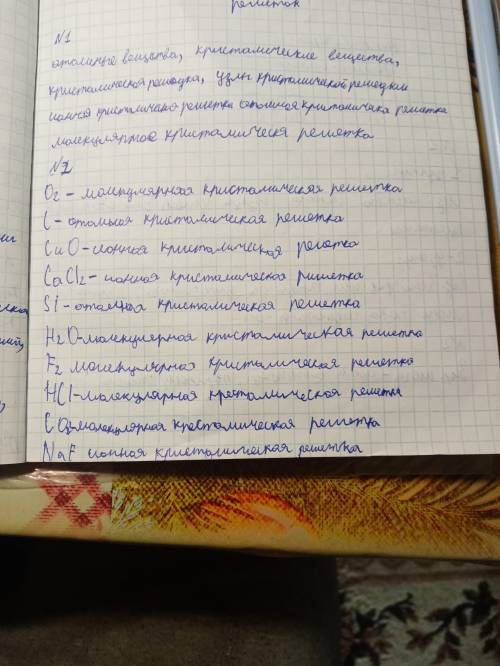 решеток
N1
вещества, кристалические вещества,
кристалическая решетка, узлы кристалической решетки
ионная кристалическая решетка атомная кристалическа решетка
молекулярное кристалическя решетка
N2
O2 - молекулярная кристалическая решетка
C - атомная кристалическая решетка
CuO - ионная кристалическая решетка
CaCl2 - ионная кристалическая ришетка
Si - атомная кристалическая решетка
H2O - молекулерная кристалическая решетка
F2 молекулярная кристалическая решетка
HCl - молекулярная кресталическая решетка
CO2 - молекулярная кресталическая решетка
NaF ионная кристалическая решетка